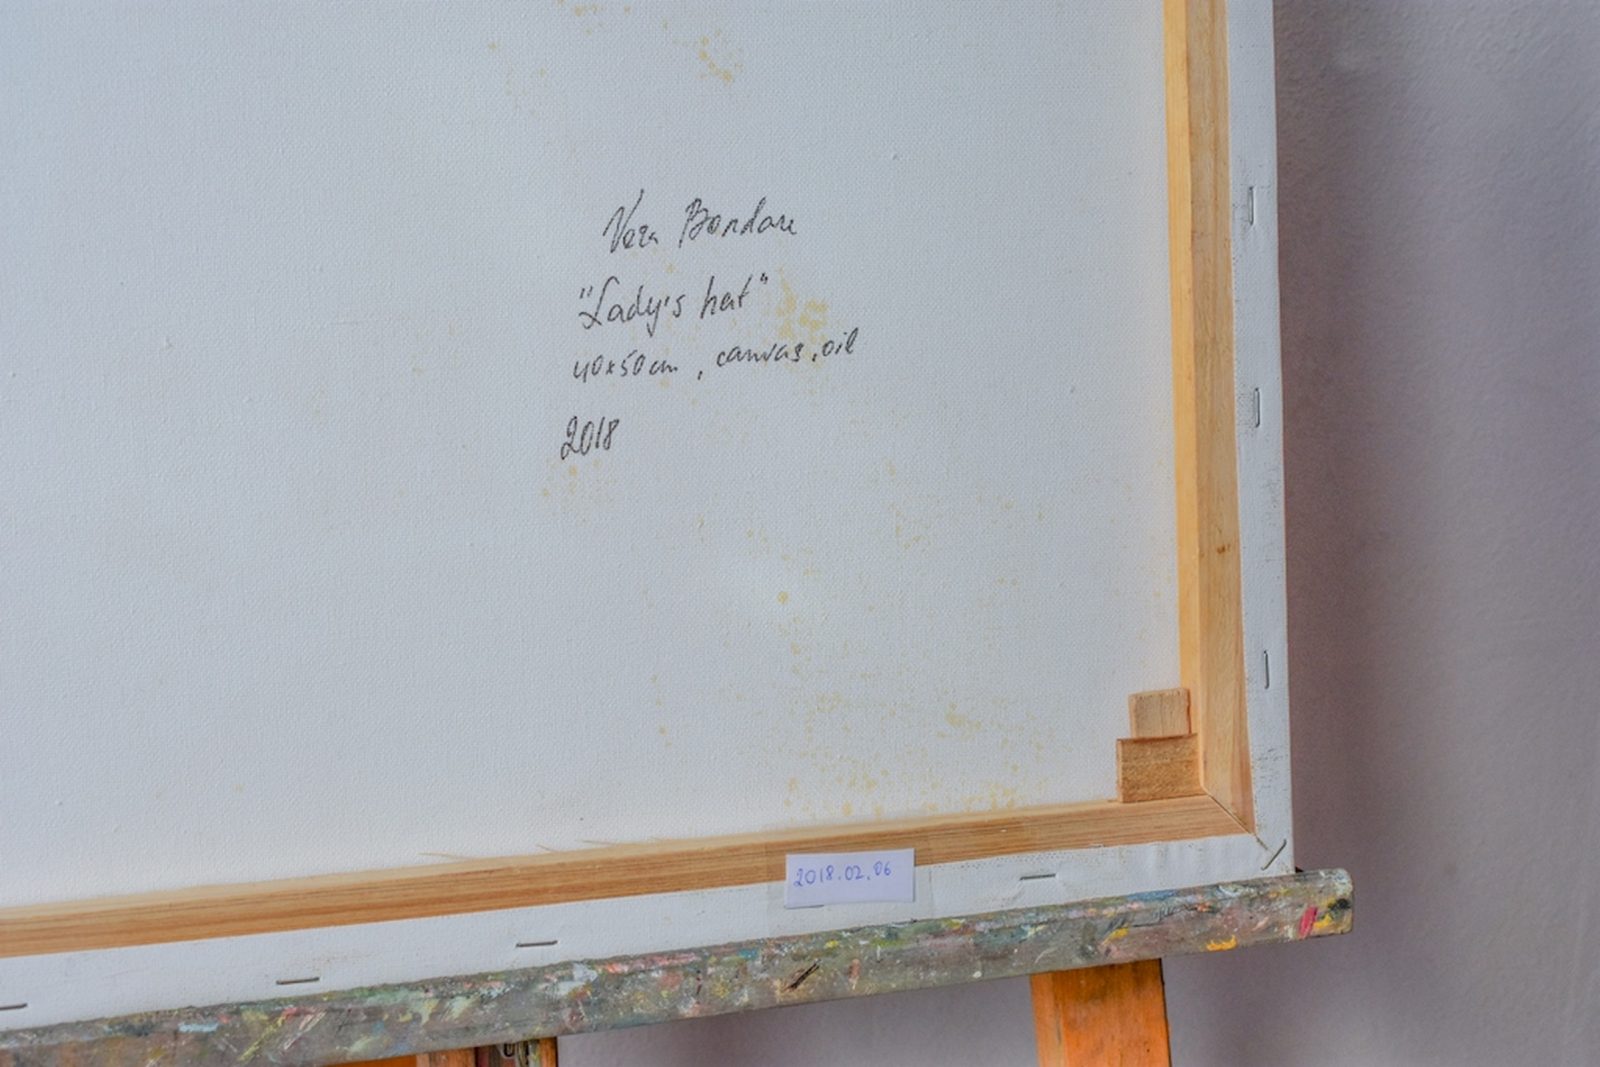 Vera Bondare
"Lady's hat"
40x50cm, canvas, oil
2018
2018.02.06